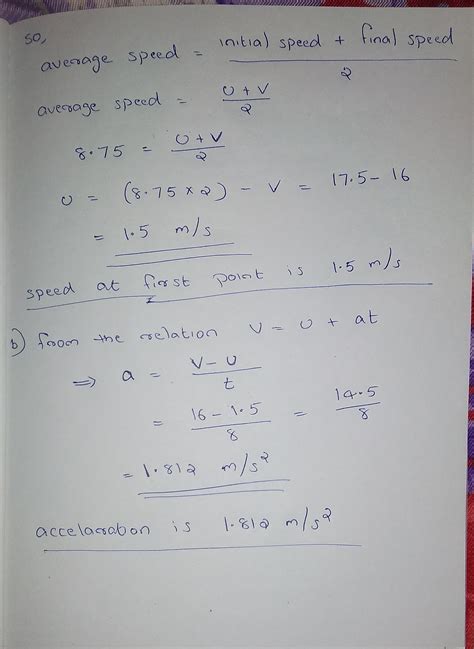 so,
average speed = initial speed + final speed / 2
average speed = U + V / 2
8.75 = U + V / 2
U = (8.75 x 2) - V = 17.5 - 16
= 1.5 m/s
speed at first point is 1.5 m/s
b) from the relation V = U + at
⇒ a = V - U / t
= 16 - 1.5 / 8 = 14.5 / 8
= 1.812 m/s²
accelaration is 1.812 m/s²